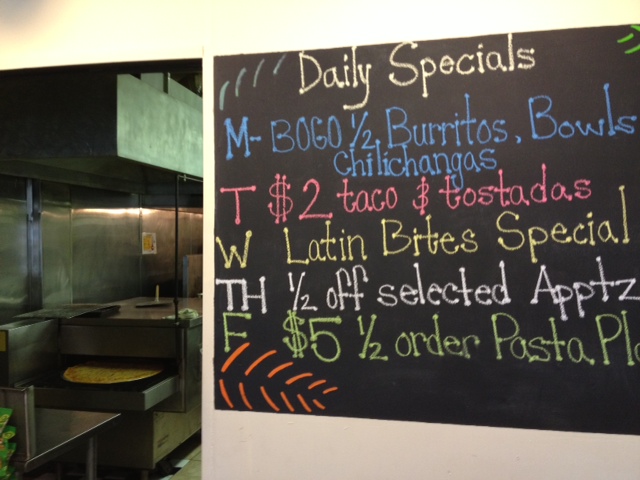 Daily Specials
M- BOGO 1/2 Burritos, Bowls
chilichangas
T $2 taco & tostadas
W Latin Bites Special
TH 1/2 off selected Apptz
F $5 1/2 order Pasta Pla